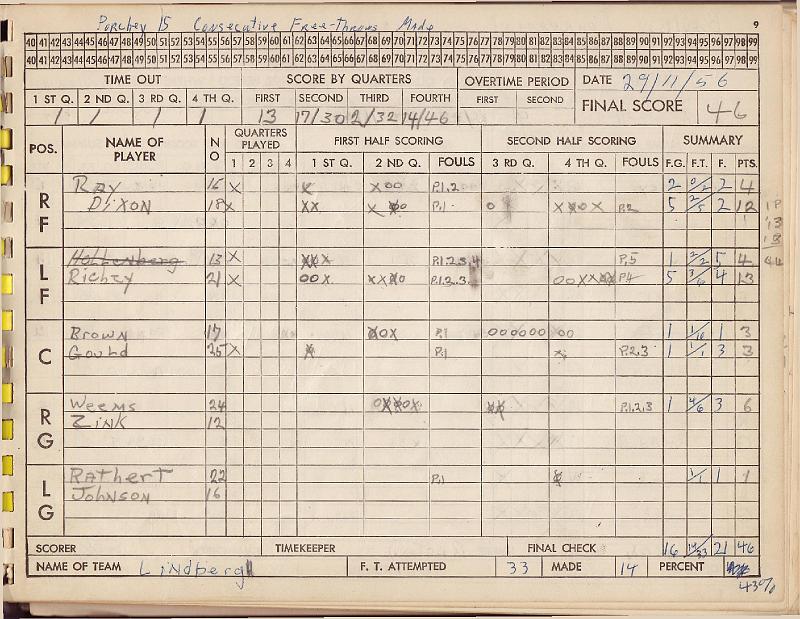 Porchey 15 Consecutive Free-throws Made
9
40 41 42 43 44 45 46 47 48 49 50 51 52 53 54 55 56 57 58 59 60 61 62 63 64 65 66 67 68 69 70 71 72 73 74 75 76 77 78 79 80 81 82 83 84 85 86 87 88 89 90 91 92 93 94 95 96 97 98 99
40 41 42 43 44 45 46 47 48 49 50 51 52 53 54 55 56 57 58 59 60 61 62 63 64 65 66 67 68 69 70 71 72 73 74 75 76 77 78 79 80 81 82 83 84 85 86 87 88 89 90 91 92 93 94 95 96 97 98 99
TIME OUT SCORE BY QUARTERS OVERTIME PERIOD DATE 29/11/56
1 ST Q. 2 ND Q. 3 RD Q. 4 TH Q. FIRST SECOND THIRD FOURTH FIRST SECOND FINAL SCORE 46
1 1 1 1 13 17/30 2/32 14/46
POS. NAME OF PLAYER NO QUARTERS PLAYED FIRST HALF SCORING SECOND HALF SCORING SUMMARY
1 2 3 4 1 ST Q. 2 ND Q. FOULS 3 RD Q. 4 TH Q. FOULS F.G. F.T. F. PTS.
RF
Ray 15 X X X00 P.1.2 2 0/2 2 4
Dixon 18 X XX X P.1 0 P.2 5 2/5 2 12
LF
Hollenberg 13 X P.1.2.3.4 P.5 1 2/2 5 4
Richey 21 X 00X P.1.2.3. P4 5 3/6 4 13
C
Brown 17 P.1 000000 00 1 1/10 1 3
Gould 25 X P.1 P.2.3 1 1/1 3 3
RG
Weems 24 P.1.2.3 1 4/6 3 6
Zink 12
LG
Rathert 22 P.1 1/1 1 1
Johnson 16
SCORER TIMEKEEPER FINAL CHECK 16 14/33 21 46
NAME OF TEAM Lindbergh F. T. ATTEMPTED 33 MADE 14 PERCENT
43%